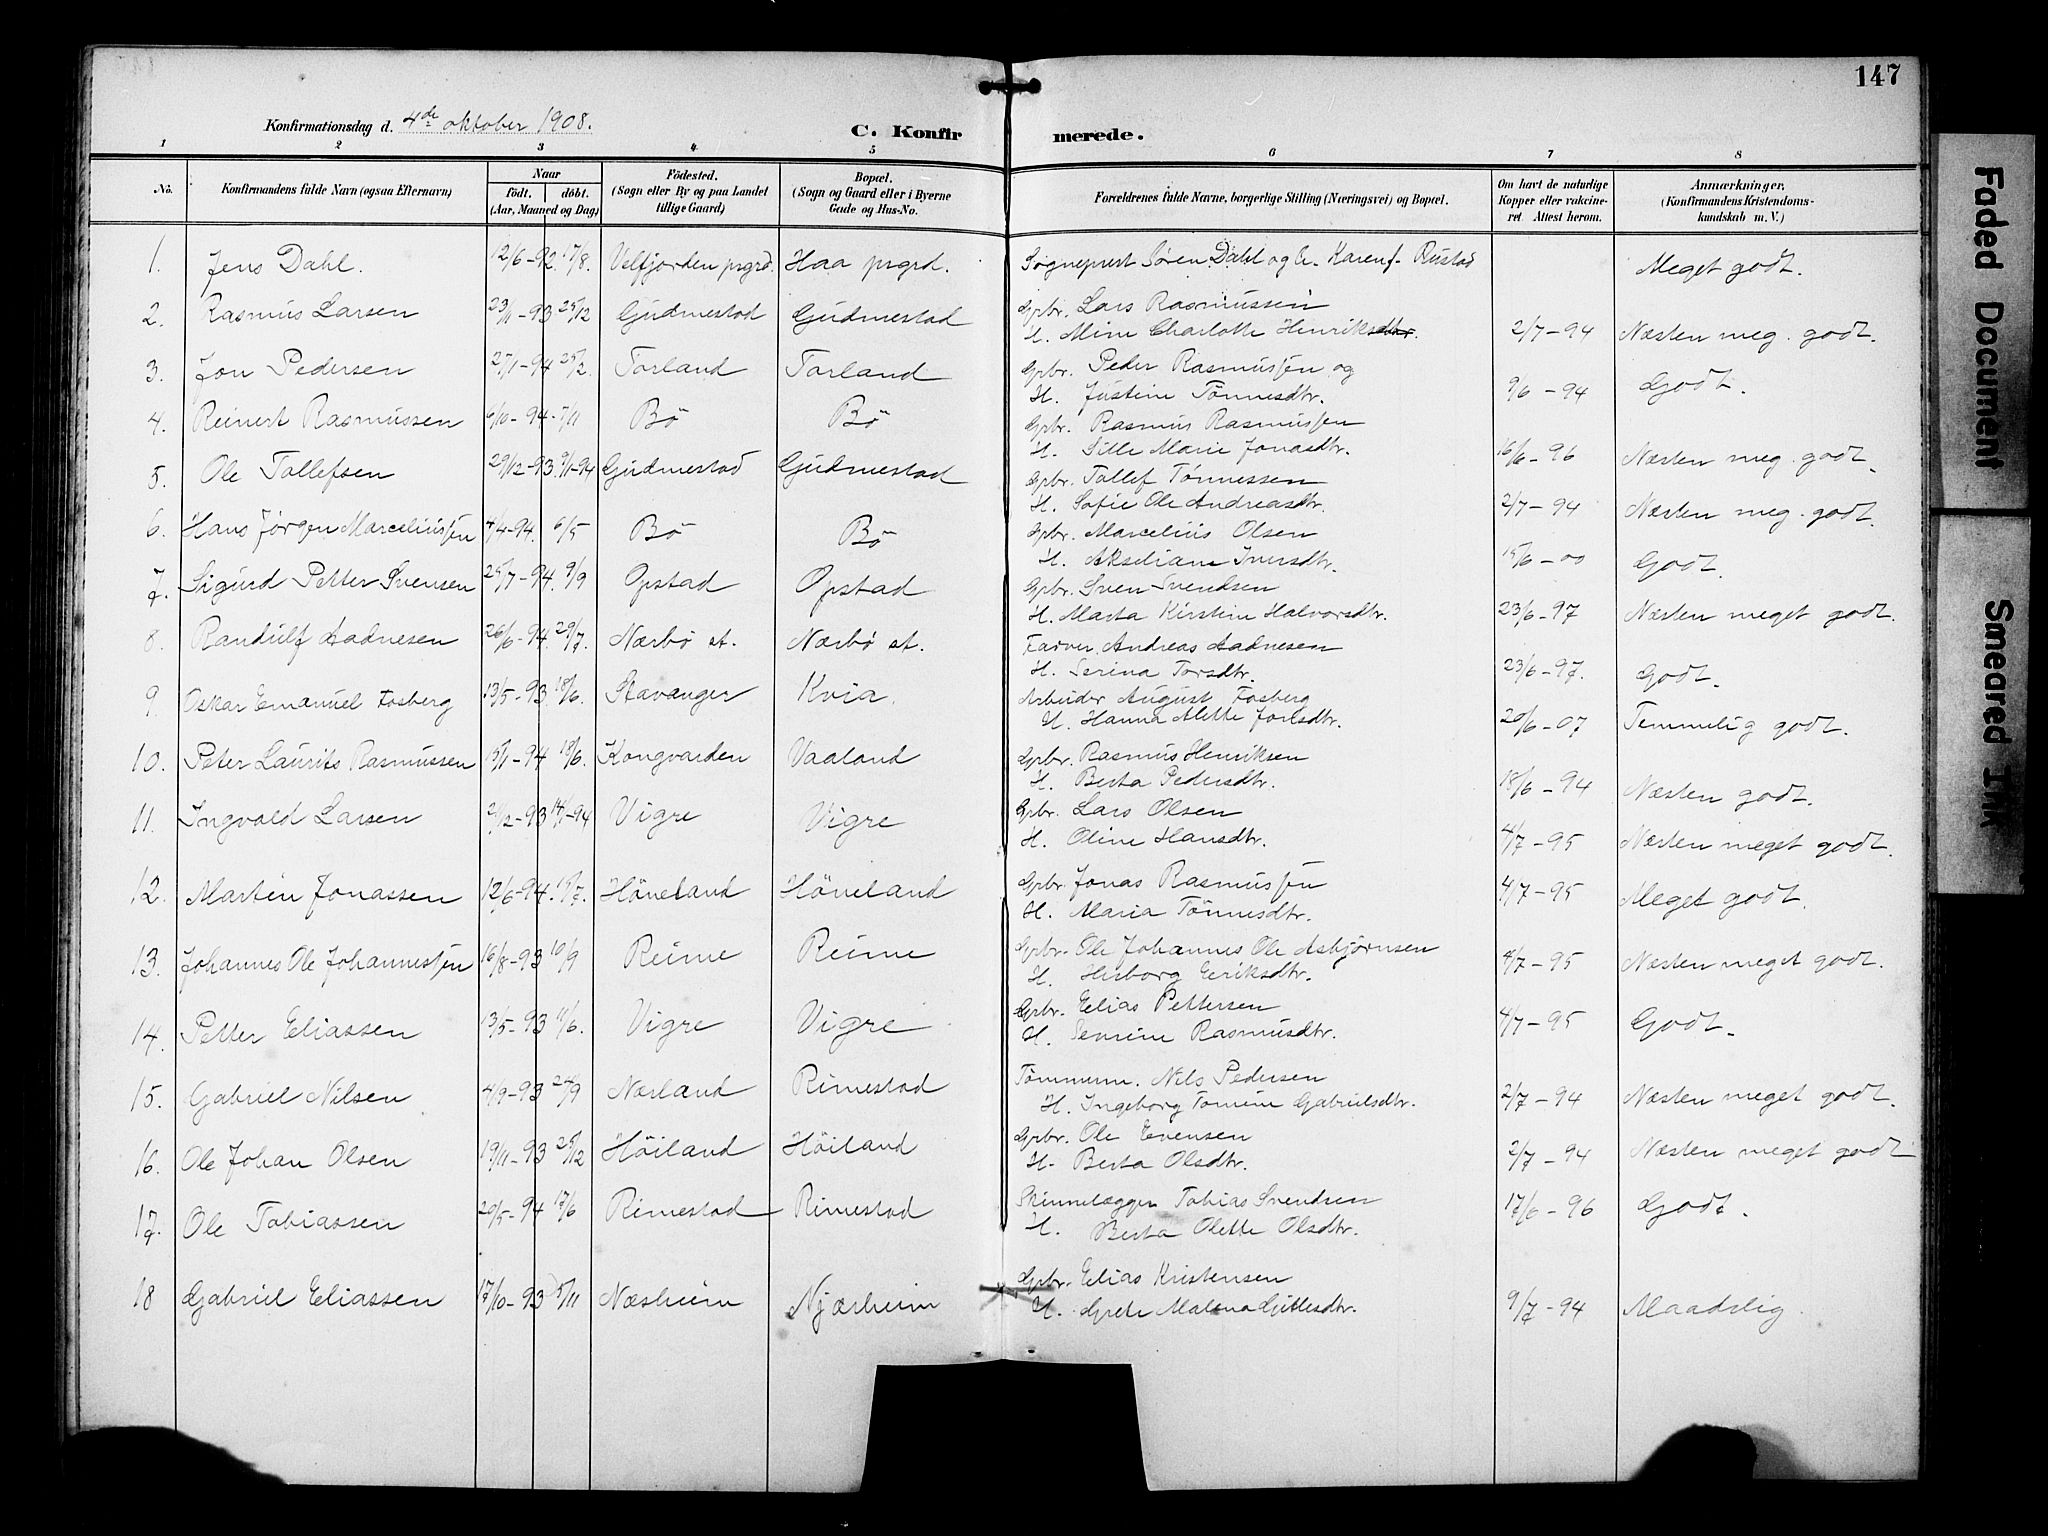 147
Konfirmationsdag d. 4de oktober 1908.
C. Konfirmerede.
1 2 3 4 5 6 7 8
No. Konfirmandens fulde Navn (ogsaa Efternavn) Naar født. døbt. (Aar, Maaned og Dag) Fødested. (Sogn eller By og paa Landet tillige Gaard) Bopæl. (Sogn og Gaard eller i Byerne Gade og Hus-No. Forældrenes fulde Navne, borgerlige Stilling (Næringsvei) og Bopæl. Om havt de naturlige Kopper eller vakcineret. Attest herom. Anmærkninger, (Konfirmandens Kristendomskundskab m. V.)
1. Jens Dahl. 12/6-92. 17/8. Velfjorden prgrd. Haa prgrd. Sogneprest Søren Dahl og Rustad Meget godt.
2. Rasmus Larsen 23/11-93 25/12 Gudmestad Gudmestad Grbr. Lars Rasmussen
H. Mine Charlotte Henriksdtr. 2/7-94 Næsten meg. godt.
3. Jon Pedersen 25/1-94 25/2. Torland Torland Grbr. Peder Rasmussen og
H. Justine Tønnesdtr. 9/6-94 Godt.
4. Reinert Rasmussen 6/10-94. 5/11 Bø Bø Grbr. Rasmus Rasmussen
H. Sille Marie Jonasdtr. 16/6-96 Næsten meg. godt.
5. Ole Tollefsen 29/12-93. 9/1-94 Gudmestad Gudmestad Grbr. Tollef Tønnessen
H. Sofie Ole Andreasdtr. 2/7-94 Næsten meg. godt.
6. Hans Jørgen Marceliussen 4/4-94. 6/5 Bø Bø Grbr. Marcelius Olsen
H. Akseliane Iversdtr. 15/6-00 Godt.
7. Sigurd Petter Svensen 25/7-94. 9/9 Opstad Opstad Grbr. Sven Svendsen
H. Marta Kirstine Halvorsdtr. 23/6-97 Næsten meget godt.
8. Randulf Aadnesen 26/6-94. 29/7. Nærbø st. Nærbø st. Farver Andreas Aadnesen
H. Serina Torsdtr. 23/6-97. Godt.
9. Oskar Emanuel Fosberg 13/5-93 18/6. Stavanger Kvia. Arbeider August Fosberg
H. Hanna Alette 20/6-07 Temmelig godt.
10. Peter Laurits Rasmussen 15/1-94 18/6. Kongvarden Vaaland Grbr. Rasmus Henriksen
H. Berta Pedersdtr. 18/6-94 Næsten godt.
11. Ingvald Larsen 21/12-93 14/1-94 Vigre Vigre Grbr. Lars Olsen
H. Oline Hansdtr. 4/7-95 Næsten meget godt.
12. Martin Jonassen 12/6-94. 15/7. Høneland Høneland Grbr. Jonas Rasmussen
H. Maria Tønnesdtr. 4/7-95 Meget godt.
13. Johannes Ole Johannessen 16/8-93 10/9 Reime Reime Grbr. Ole Johannes Ole Asbjørnsen
H. Herborg Eeriksdtr. 4/7-95 Næsten meget godt.
14. Petter Eliassen 13/5-93 11/6. Vigre Vigre Grbr. Elias Pettersen
H. Serine Rasmusdtr. 4/7-95 Godt.
15. Gabriel Nilsen 4/9-93 24/9 Nærland Rimestad Tømmerm. Nils Pedersen
H. Ingeborg Tomine Gabrielsdtr. 2/7-94 Næsten meget godt.
16. Ole Johan Olsen 19/11-93 25/12 Høiland Høiland Grbr. Ole Evensen
H. Berta Olsdtr. 2/7-94 Næsten meget godt
17. Ole Tobiassen 20/5-94 17/6 Rimestad Rimestad Skinnelægger Tobias Svendsen
H. Berta Olette Olsdtr. 17/6-96 Godt.
18 Gabriel Eliassen 17/10-93 5/11 Næsheim Njærheim Grbr. Elias Kristensen
H. Grete Malena Gittlesdtr. 9/7-94 Maadelig.
Faded Document
Smeared Ink